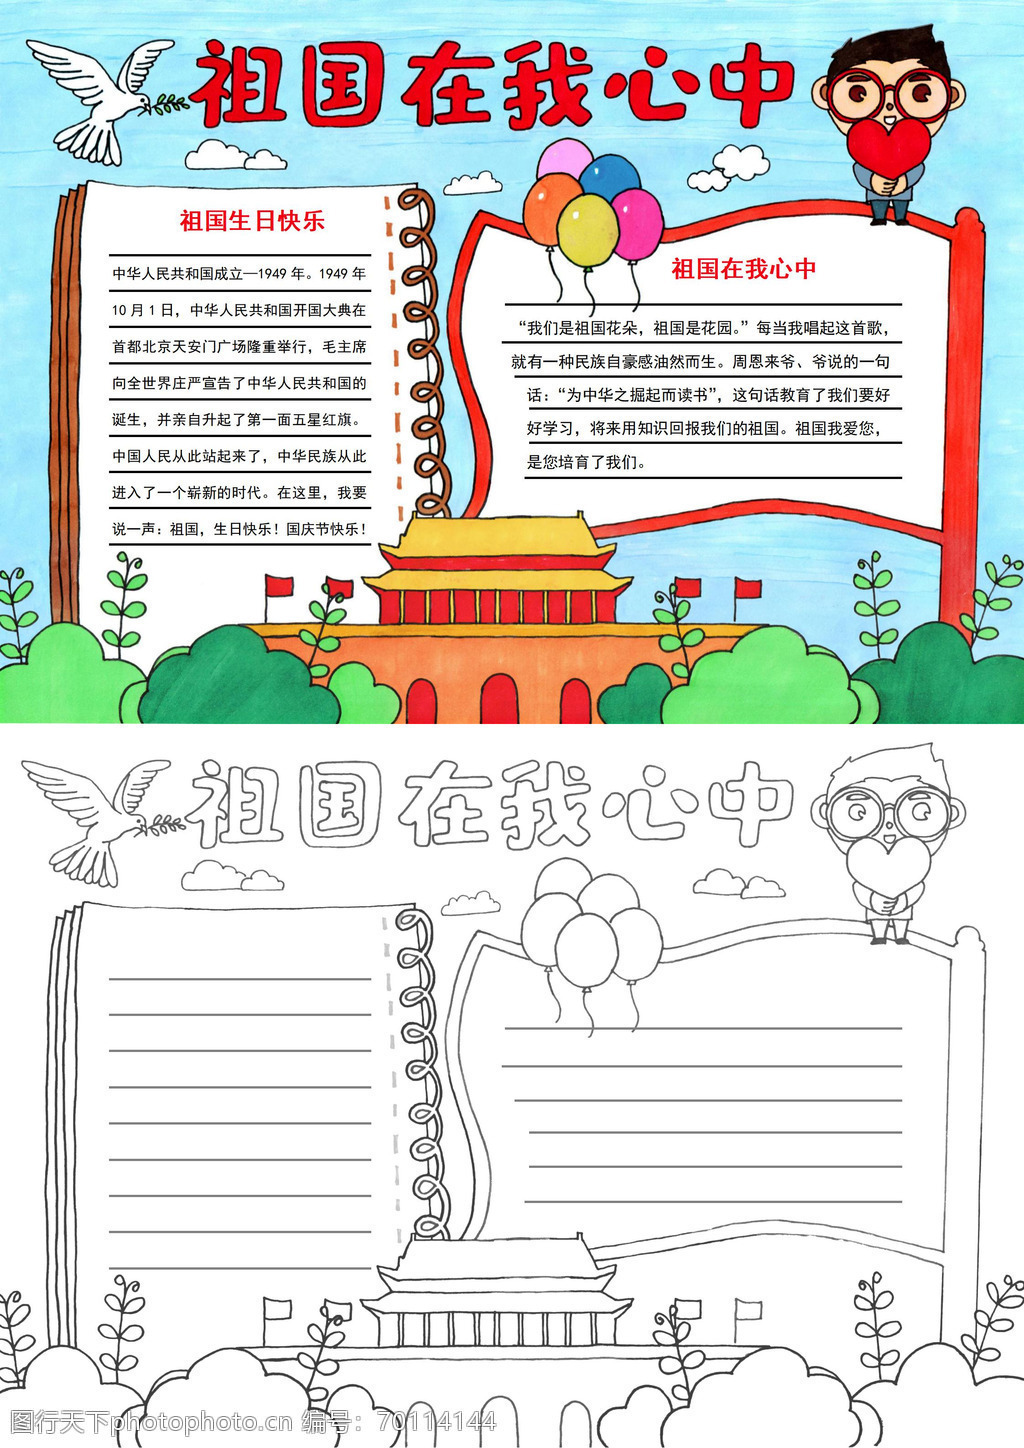 祖国在我心中
祖国生日快乐
中华人民共和国成立—1949年。1949年
10月1日，中华人民共和国开国大典在
首都北京天安门广场隆重举行，毛主席
向全世界庄严宣告了中华人民共和国的
诞生，并亲自升起了第一面五星红旗。
中国人民从此站起来了，中华民族从此
进入了一个崭新的时代。在这里，我要
说一声：祖国，生日快乐！国庆节快乐！
祖国在我心中
“我们是祖国花朵，祖国是花园。”每当我唱起这首歌，
就有一种民族自豪感油然而生。周恩来爷、爷说的一句
话：“为中华之掘起而读书”，这句话教育了我们要好
好学习，将来用知识回报我们的祖国。祖国我爱您，
是您培育了我们。
祖国在我心中
图行天下photophoto.cn 编号：70114144